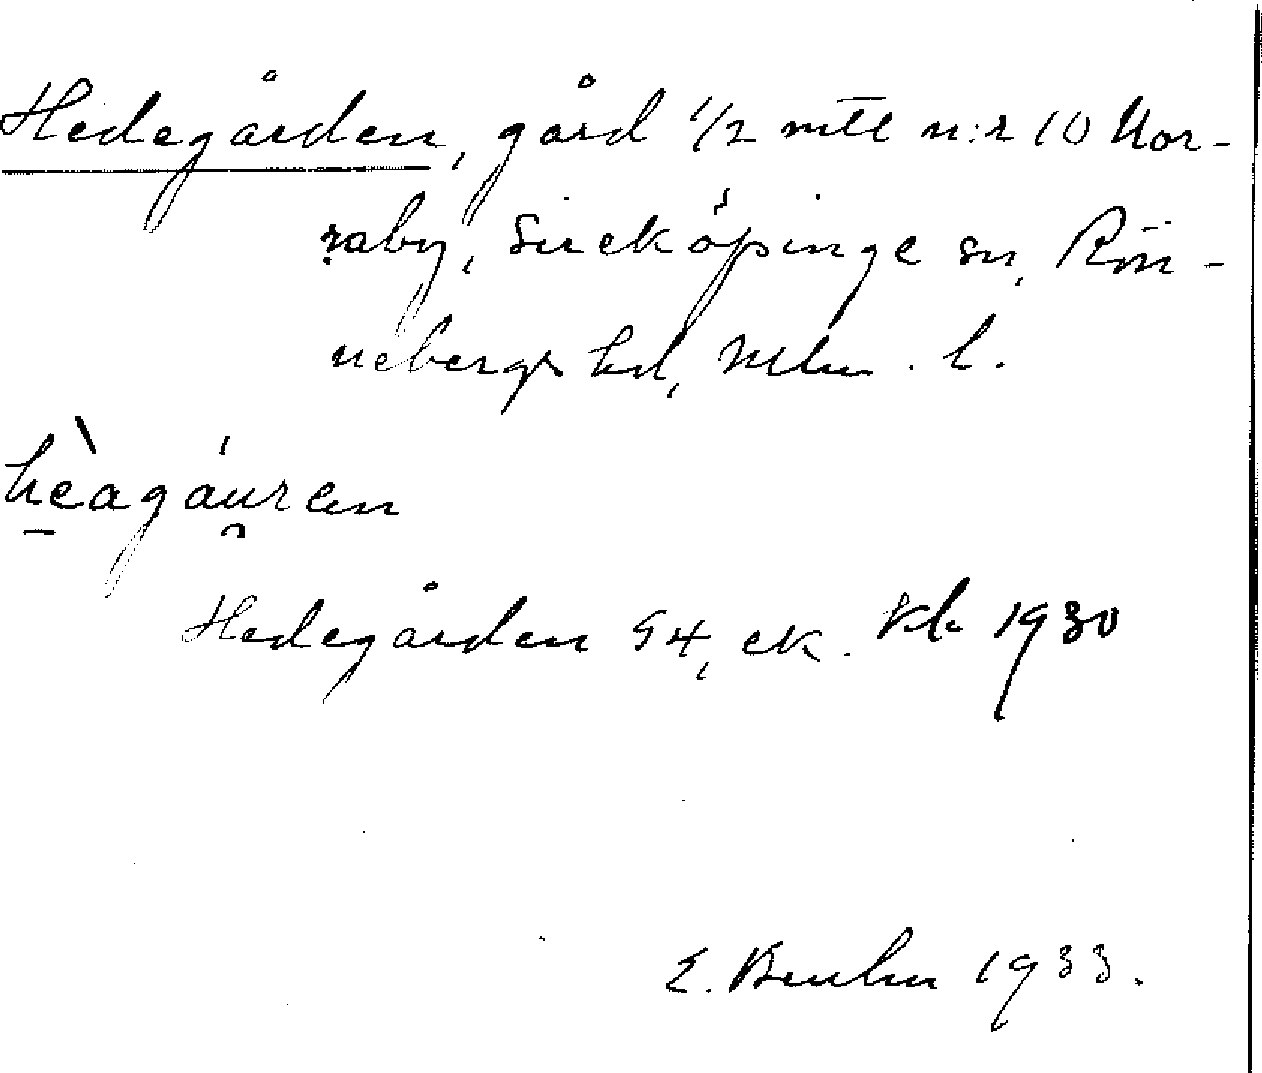 Hedegården, gård 1/2 mtl n:r 10 Nor-
raby, Sireköpinge sn, Rön-
nebergs hd, Mlm. l.
hèagáu̯ren
Hedegården 54, ek. Kh 1930
E. Bruhn 1933.